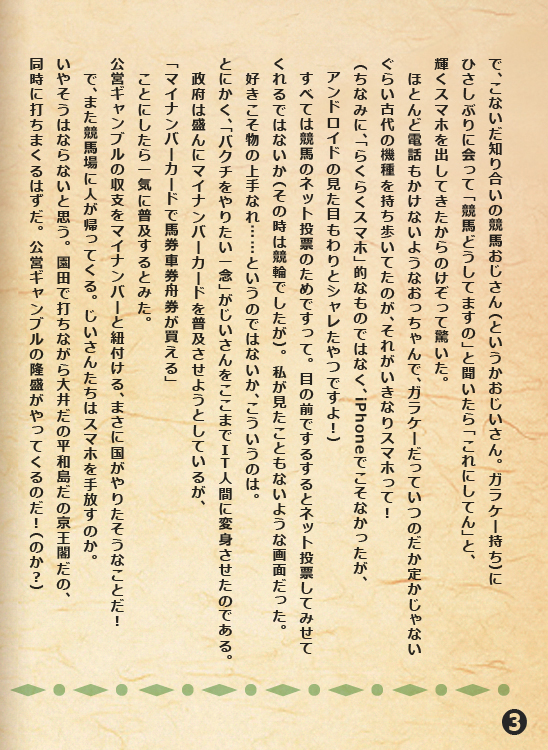 で、こないだ知り合いの競馬おじさん(というかおじいさん。ガラケー持ち)に
ひさしぶりに会って「競馬どうしてますの」と聞いたら「これにしてん」と、
輝くスマホを出してきたからのけぞって驚いた。
ほとんど電話もかけないようなおっちゃんで、ガラケーだっていつのだか定かじゃない
ぐらい古代の機種を持ち歩いてたのが、それがいきなりスマホって!
(ちなみに、「らくらくスマホ」的なものではなく、iPhoneでこそなかったが、
アンドロイドの見た目もわりとシャレたやつですよ!)
すべては競馬のネット投票のためですって。目の前でするするとネット投票してみせて
くれるではないか(その時は競輪でしたが)。私が見たこともないような画面だった。
好きこそ物の上手なれ……というのではないか、こういうのは。
とにかく、「バクチをやりたい一念」がじいさんをここまでIT人間に変身させたのである。
政府は盛んにマイナンバーカードを普及させようとしているが、
「マイナンバーカードで馬券車券舟券が買える」
ことにしたら一気に普及するとみた。
公営ギャンブルの収支をマイナンバーと紐付ける、まさに国がやりたそうなことだ!
で、また競馬場に人が帰ってくる。じいさんたちはスマホを手放すのか。
いやそうはならないと思う。園田で打ちながら大井だの平和島だの京王閣だの、
同時に打ちまくるはずだ。公営ギャンブルの隆盛がやってくるのだ!(のか?)
3